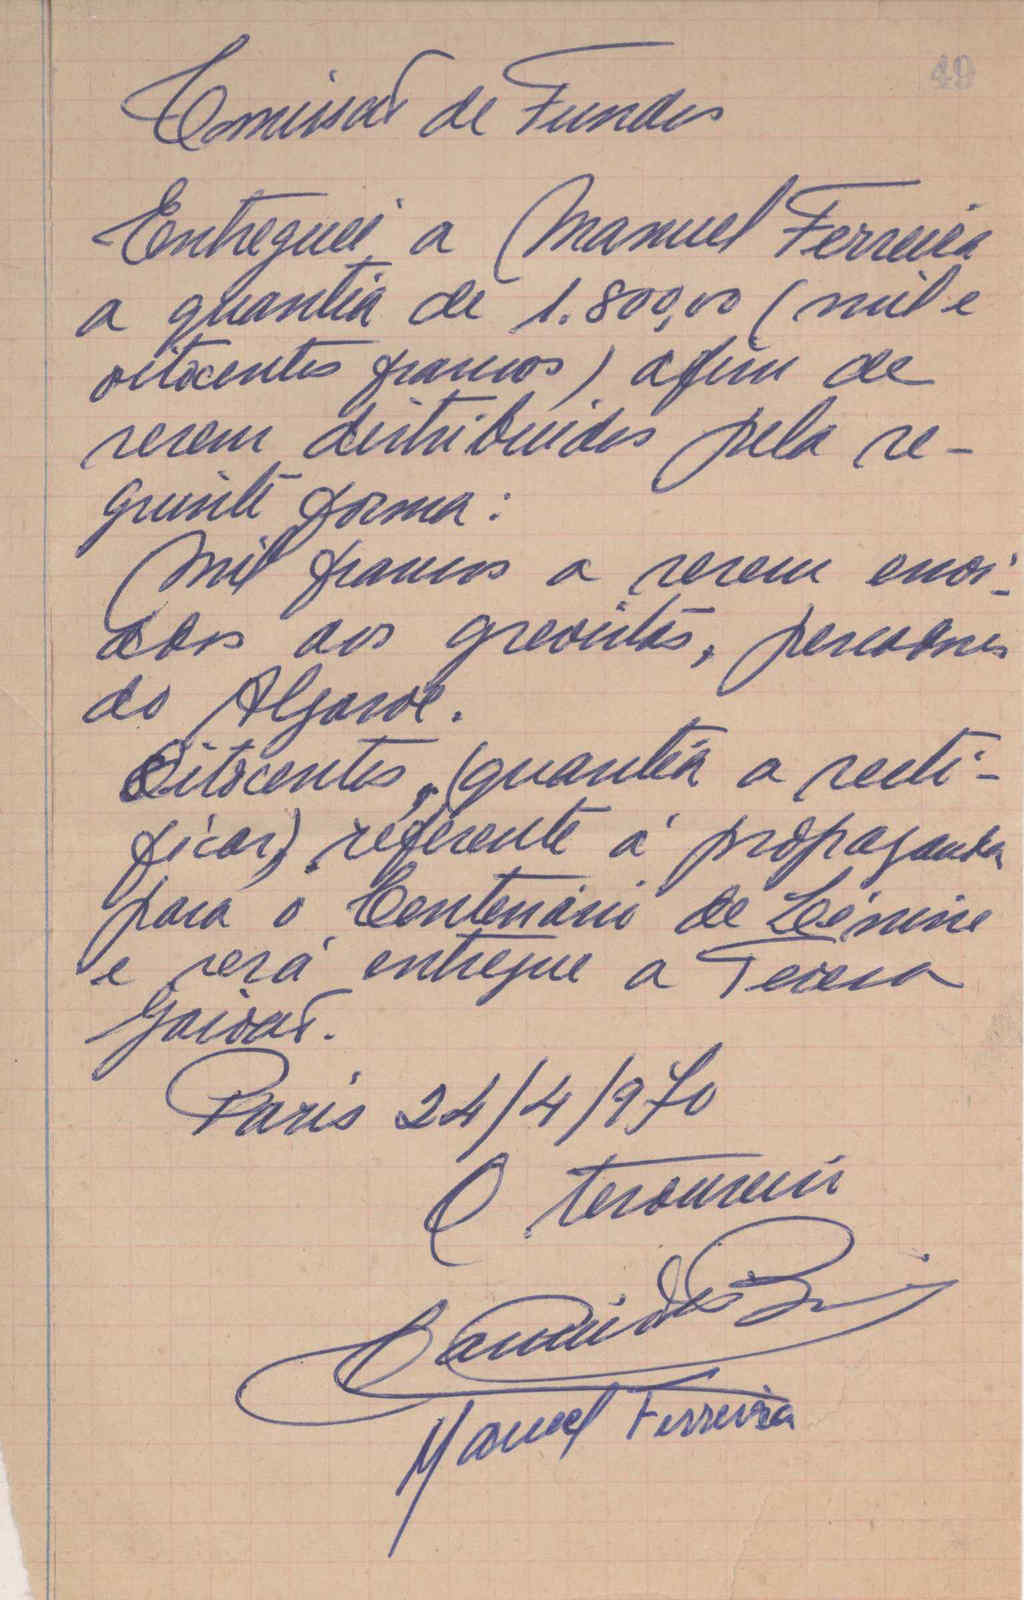 49
Comissão de Fundos
Entreguei a Manuel Ferreira
a quantia de 1.800,00 (mil e
oitocentos francos) afim de
serem distribuidos pela se-
guinte forma:
Mil francos a serem envi-
ados aos grevistas, pescadores
do Algarve.
Oitocentos, (quantia a recti-
ficar), referente á propaganda
para o Centenário de Lénine
e será entregue a Teresa
Gaivão.
Paris 24/4/970
O tesoureiro
Manuel Ferreira